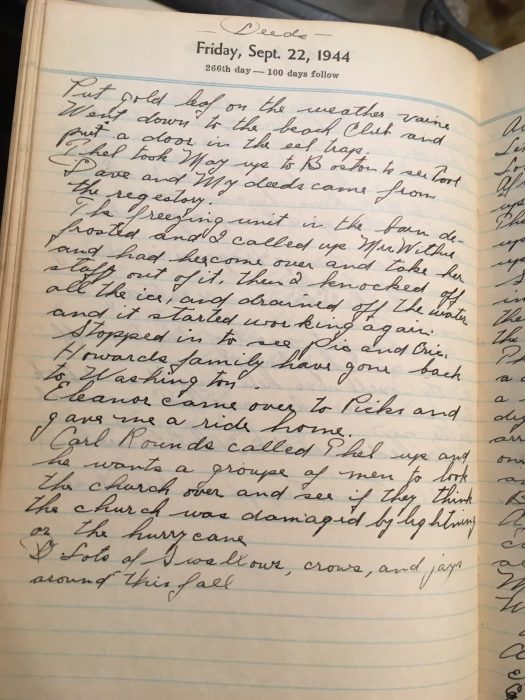 — Deeds —
Friday, Sept. 22, 1944
266th day — 100 days follow
Put gold leaf on the weather vaine
Went down to the beach Club and
put a door in the eel trap.
Phel took May up to Boston to see
Dave and My deeds came from
the regestory.
The freezing unit in the barn de-
frosted and I called up Mrs. Withie
and had her come over and take her
stuff out of it, then I knocked off
all the ice, and drained off the water
and it started working again.
Stopped in to see Pic and Eric.
Howards family have gone back
to Washington.
Eleanor came over to Picks and
gave me a ride home.
Carl Rounds called Phel up and
he wants a groupe of men to look
the church over and see if they think
the church was damaged by lightning
or the hurrycane
Lots of Swallows, crows, and jays
around this fall